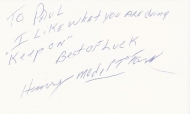 To Paul
"I Like what you are doing
"Keep on"
Best of Luck